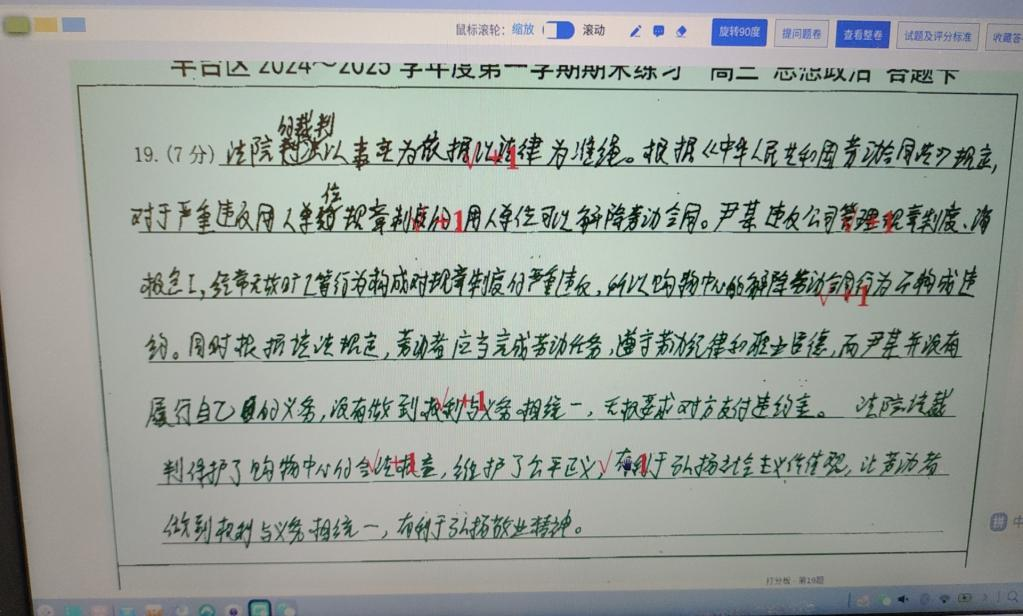 鼠标滚轮: 缩放 滚动 旋转90度 提问题卷 查看整卷 试题及评分标准 收藏答
丰台区 2024～2025 学年度第一学期期末练习 高三 思想政治 答题卡
的裁判
19. (7 分) 法院以事实为依据以法律为准绳。根据《中华人民共和国劳动合同法》规定,
位
对于严重违反用人单规章制度的,用人单位可以解除劳动合同。尹某违反公司管理规章制度、谎
报色工,经常无故旷工等行为构成对规章制度的严重违反,所以购物中心的解除劳动合同行为不构成违
约。同时根据该法规定,劳动者应当完成劳动任务,遵守劳动纪律和职业道德,而尹某并没有
履行自己的义务,没有做到权利与义务相统一,无权要求对方支付违约金。法院该裁
判保护了购物中心的合法权益,维护了公平正义,有利于弘扬社会主义价值观,让劳动者
做到权利与义务相统一,有利于弘扬敬业精神。
+1
+1
+1
+1
+1
+1
打分板 - 第19题
拼 中